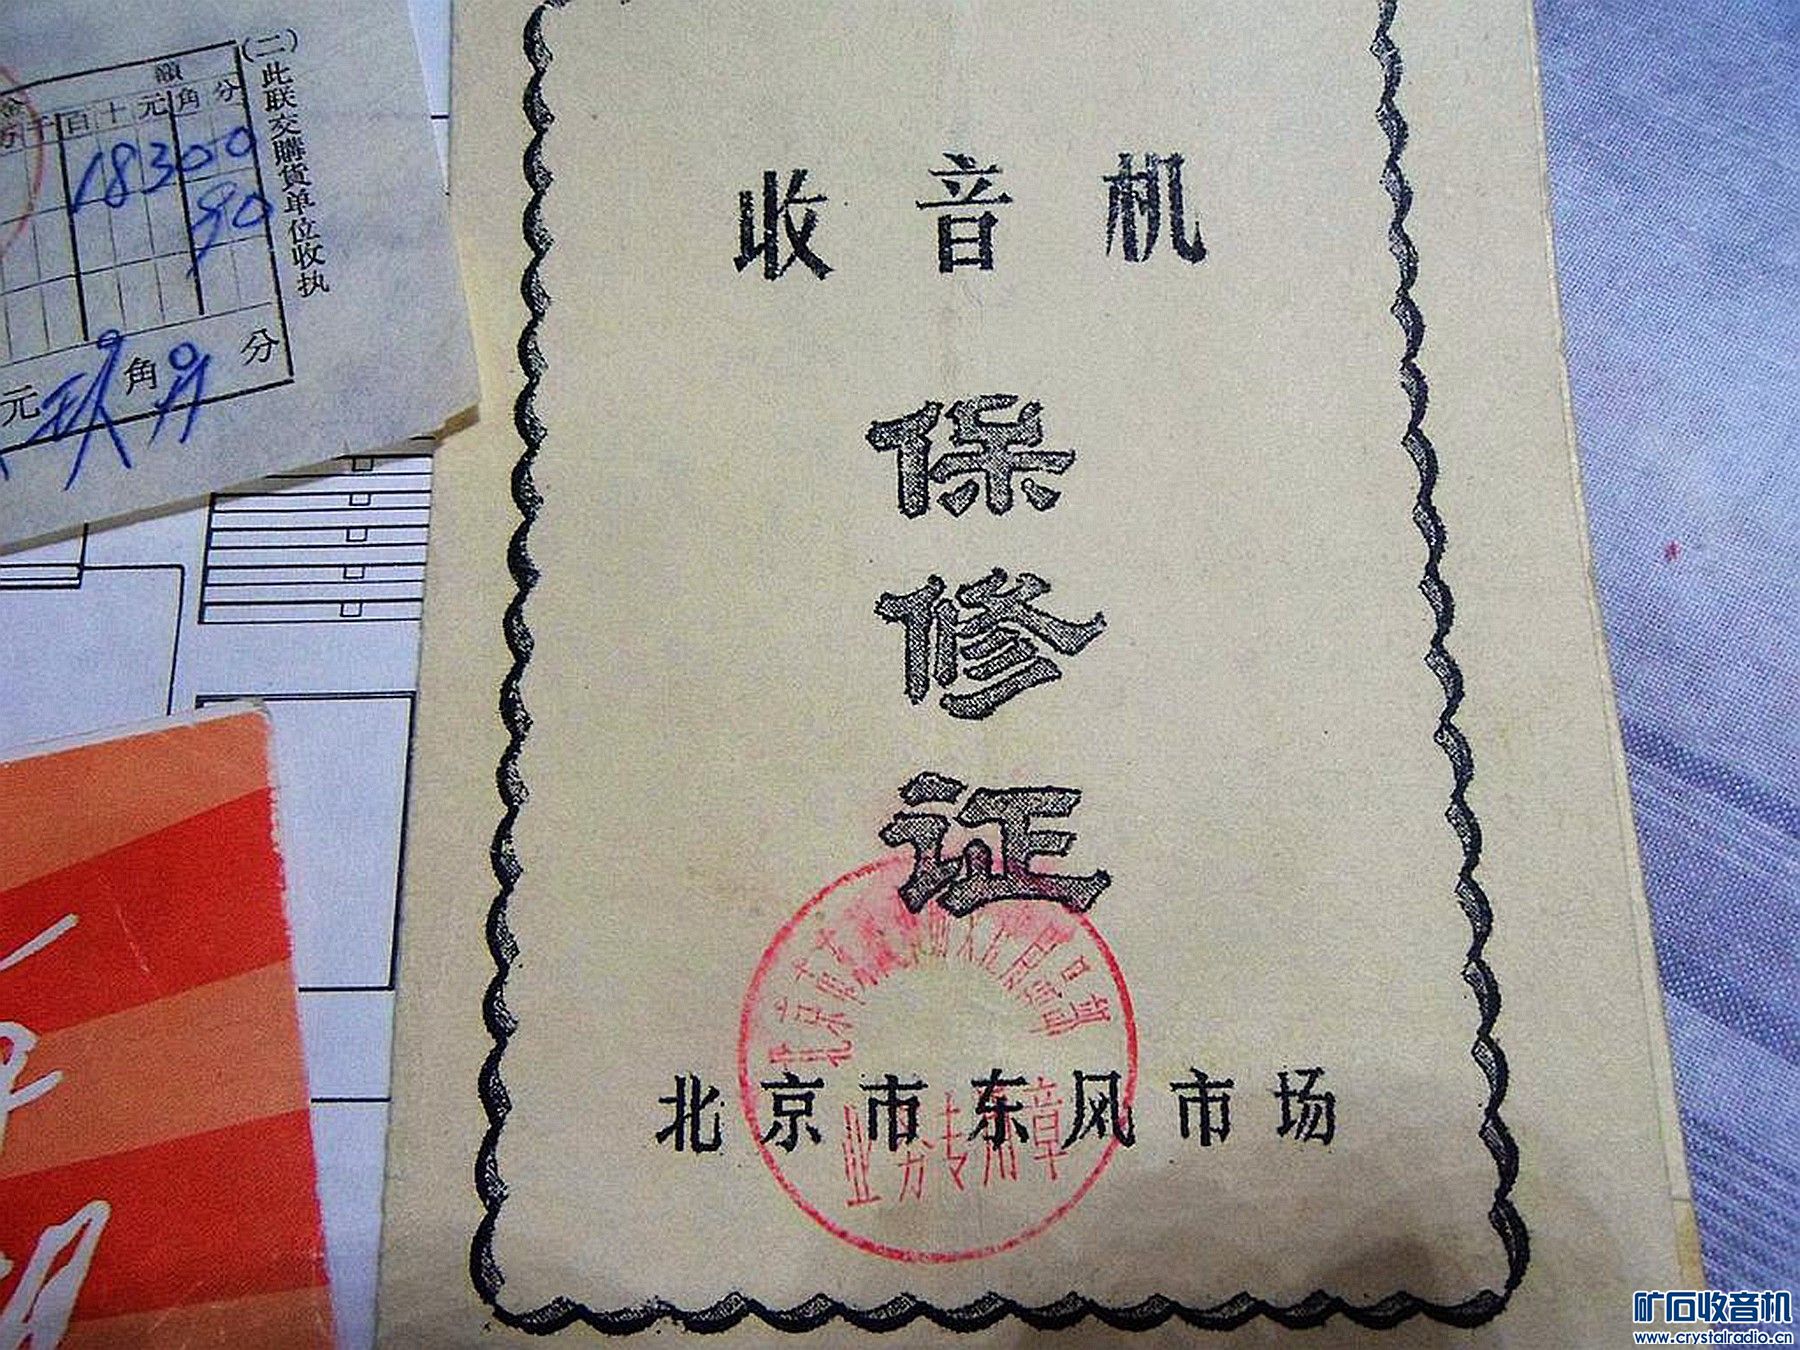 (二)此联交購貨单位收执
金 額
万千百十元角分
18300
90
元玖角 分
收音机
保修证
北京市东风市场
业务专用章
矿石收音机
www.crystalradio.cn